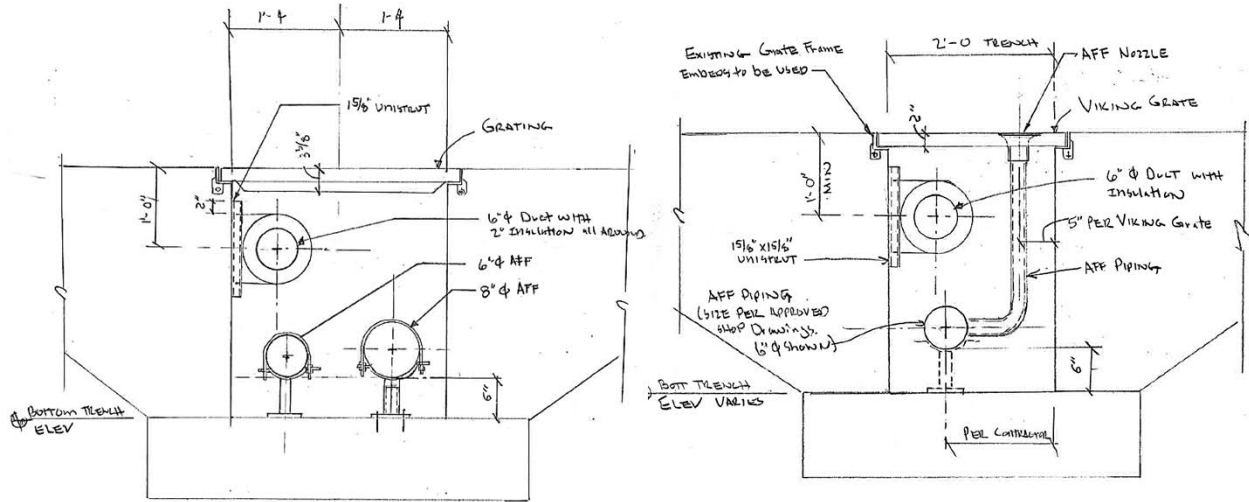 1'-4
1'-4
1 5/8" UNISTRUT
GRATING
3 3/8"
2"
1'-0"
6" φ DUCT WITH
2" INSULATION ALL AROUND
6" φ AFF
8" φ AFF
6"
BOTTOM TRENCH
ELEV
2'-0 TRENCH
EXISTING GRATE FRAME
EMBEDS TO BE USED
AFF NOZZLE
VIKING GRATE
2"
1'-0"
MIN
6" φ DUCT WITH
INSULATION
5" PER VIKING GRATE
1 5/8" x 1 5/8"
UNISTRUT
AFF PIPING
AFF PIPING
(SIZE PER APPROVED
SHOP DRAWINGS.
6" φ SHOWN)
6"
BOTT TRENCH
ELEV VARIES
PER CONTRACTOR